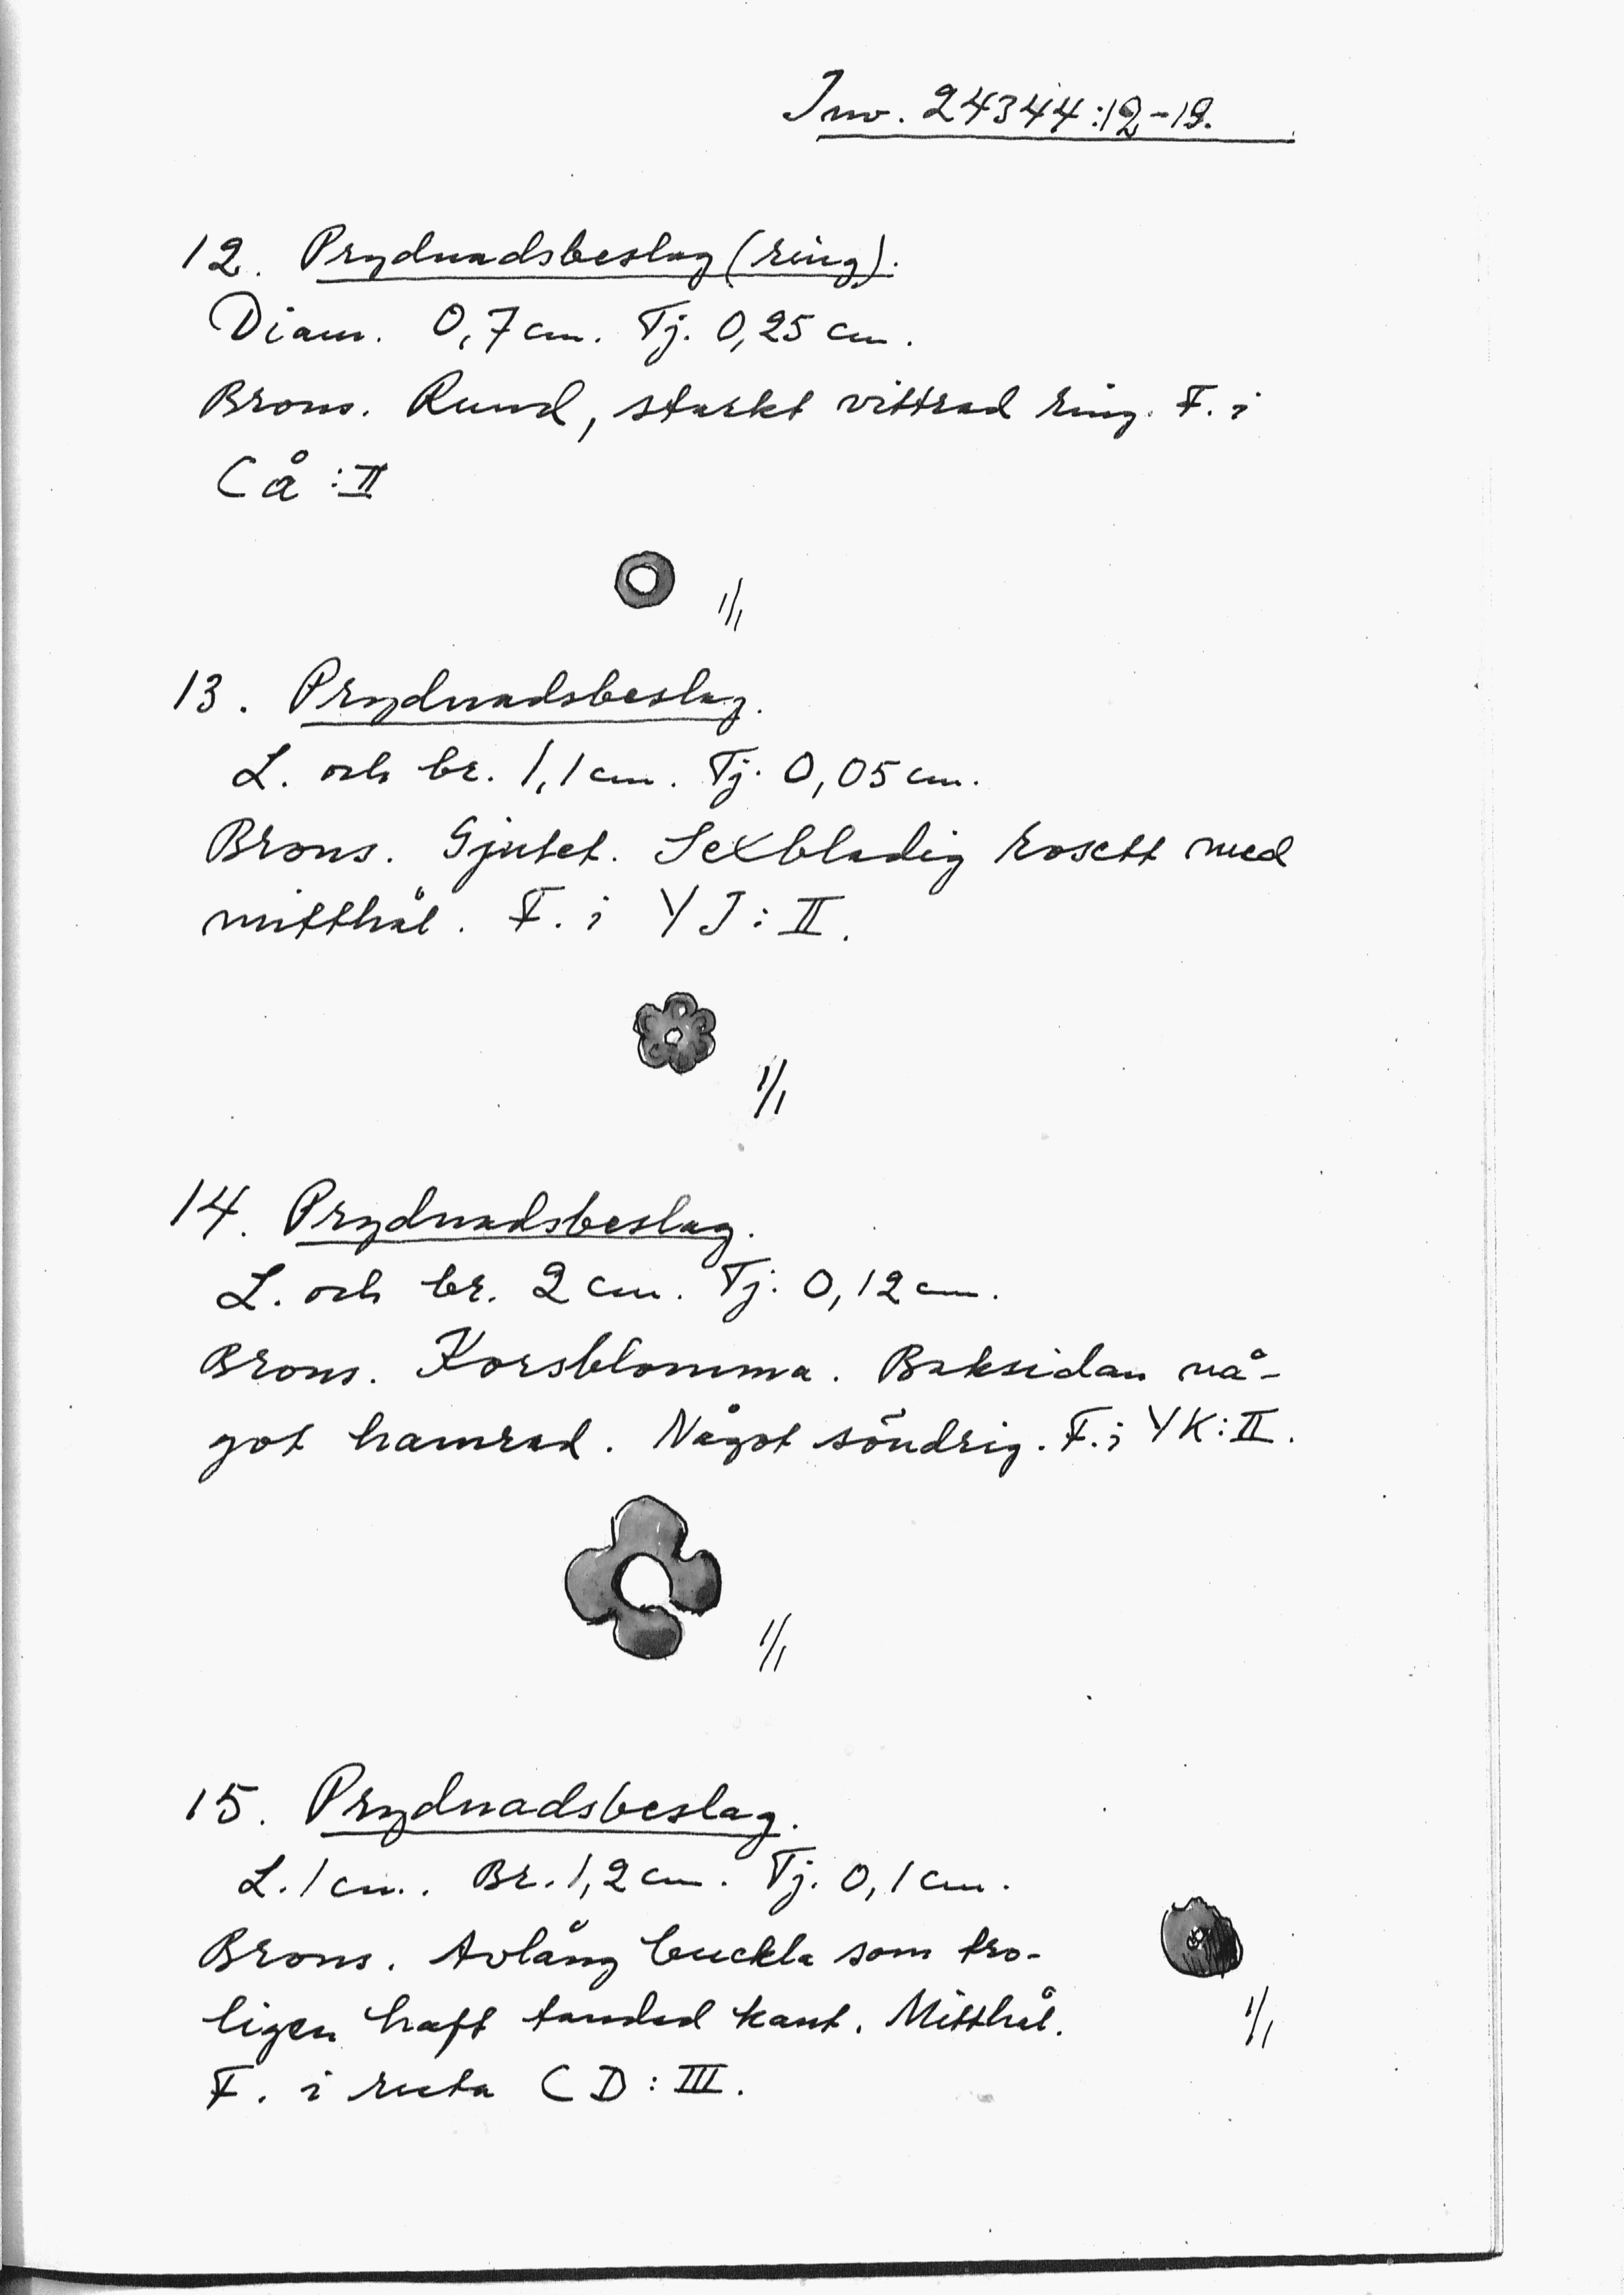 Inv. 24344:12-19.
12. Prydnadsbeslag (ring).
Diam. 0,7 cm. Tj. 0,25 cm.
Brons. Rund, starkt vittrad ring. F. i
CÅ:II
1/1
13. Prydnadsbeslag.
L. och br. 1,1 cm. Tj. 0,05 cm.
Brons. Gjutet. Sexbladig rosett med
mitthål. F. i YJ:II.
1/1
14. Prydnadsbeslag.
L. och br. 2 cm. Tj. 0,12 cm.
Brons. Korsblomma. Baksidan nå-
got hamrad. Något söndrig. F. i YK:II.
1/1
15. Prydnadsbeslag.
L. 1 cm. Br. 1,2 cm. Tj. 0,1 cm.
Brons. Avlång buckla som tro-
ligen haft tandad kant. Mitthål.
1/1
F. i ruta CD:III.